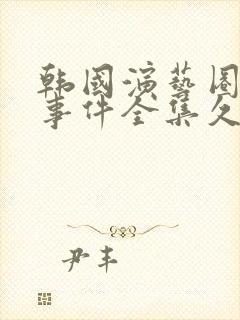 韩国演艺圈
事件全集久
尹丰